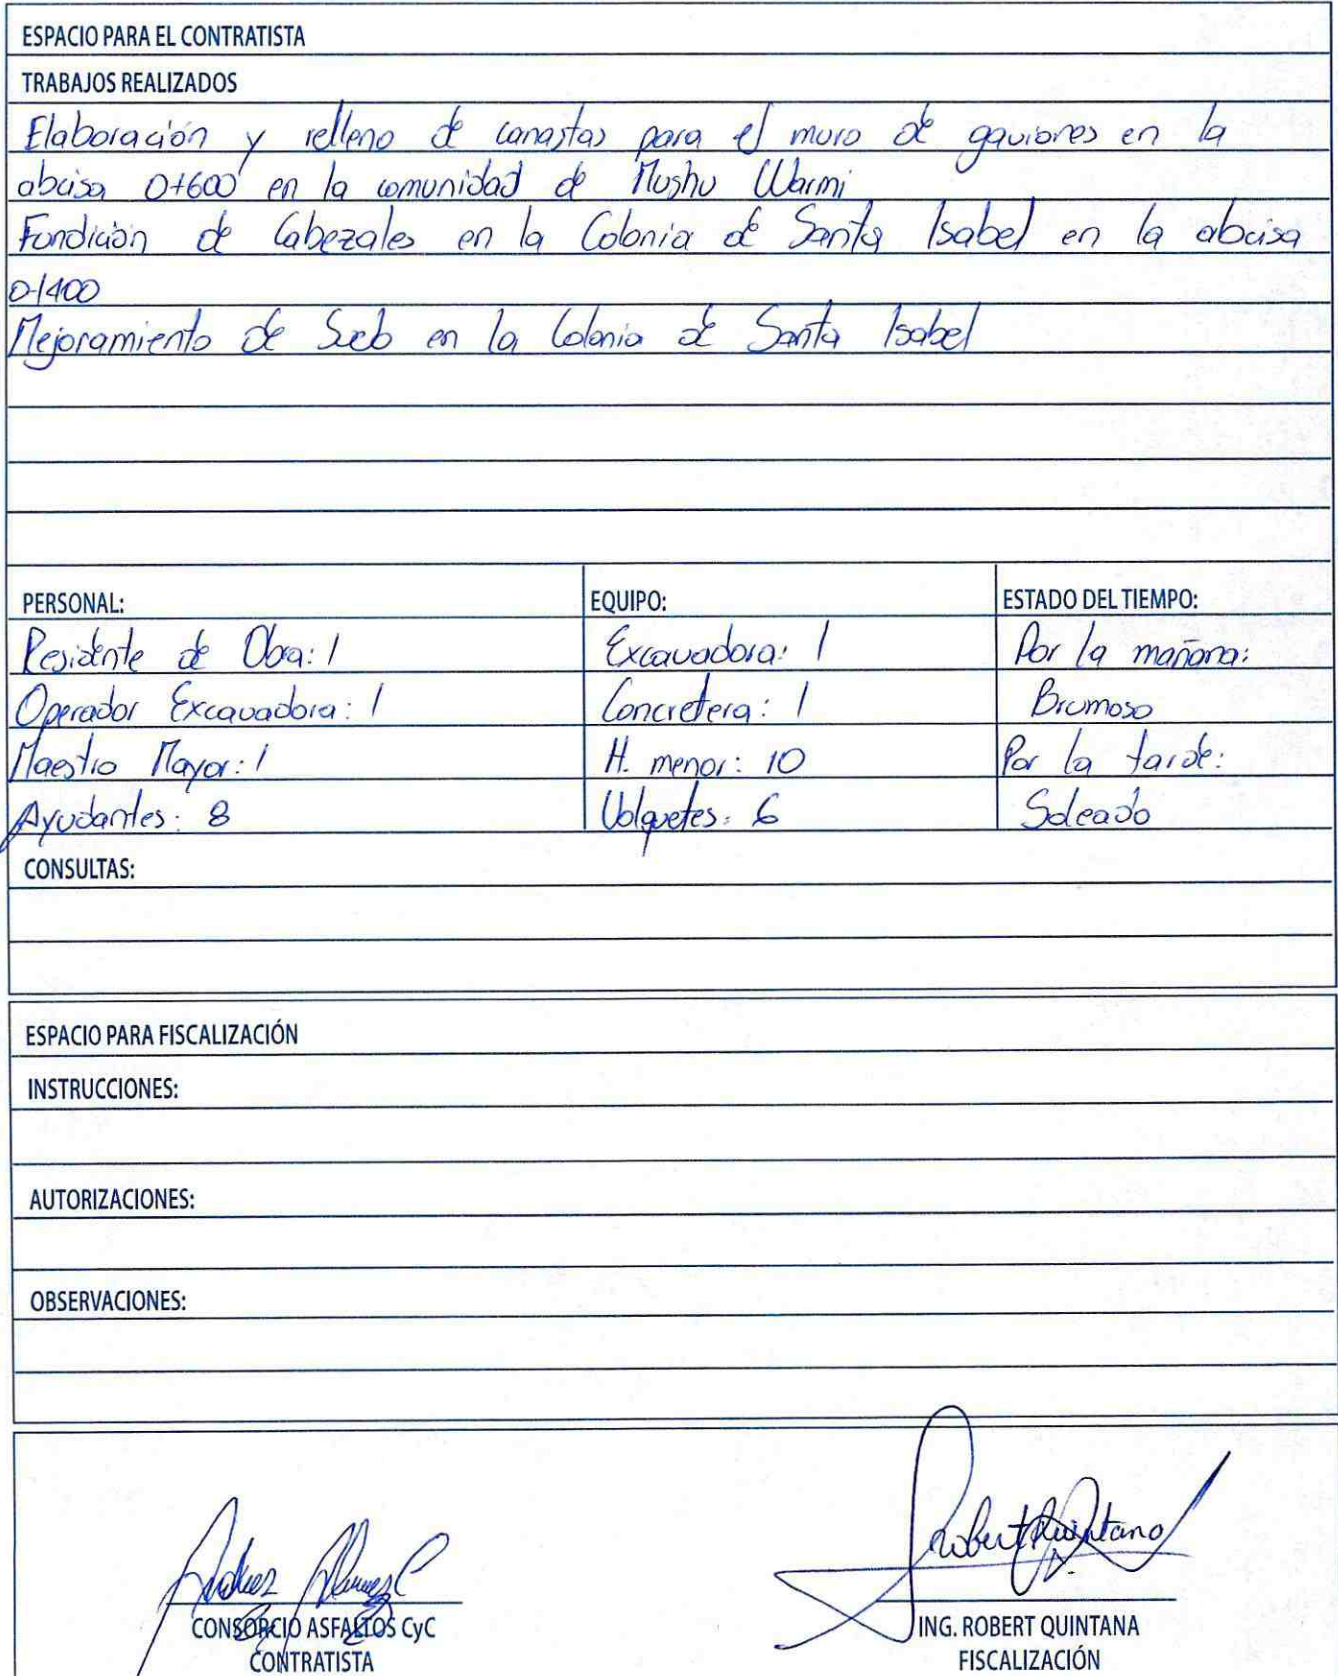 ESPACIO PARA EL CONTRATISTA
TRABAJOS REALIZADOS
Elaboración y relleno de canastas para el muro de gaviones en la
abcisa 0+600 en la comunidad de Mushu Warmi
Fundición de Cabezales en la Colonia de Santa Isabel en la abcisa
0+400
Mejoramiento de Suelo en la Colonia de Santa Isabel
PERSONAL: EQUIPO: ESTADO DEL TIEMPO:
Residente de Obra: 1 Excavadora: 1 Por la mañana:
Operador Excavadora: 1 Concretera: 1 Brumoso
Maestro Mayor: 1 H. menor: 10 Por la tarde:
Ayudantes: 8 Volquetes: 6 Soleado
CONSULTAS:
ESPACIO PARA FISCALIZACIÓN
INSTRUCCIONES:
AUTORIZACIONES:
OBSERVACIONES:
Robert Quintana
CONSORCIO ASFALTOS CyC ING. ROBERT QUINTANA
CONTRATISTA FISCALIZACIÓN